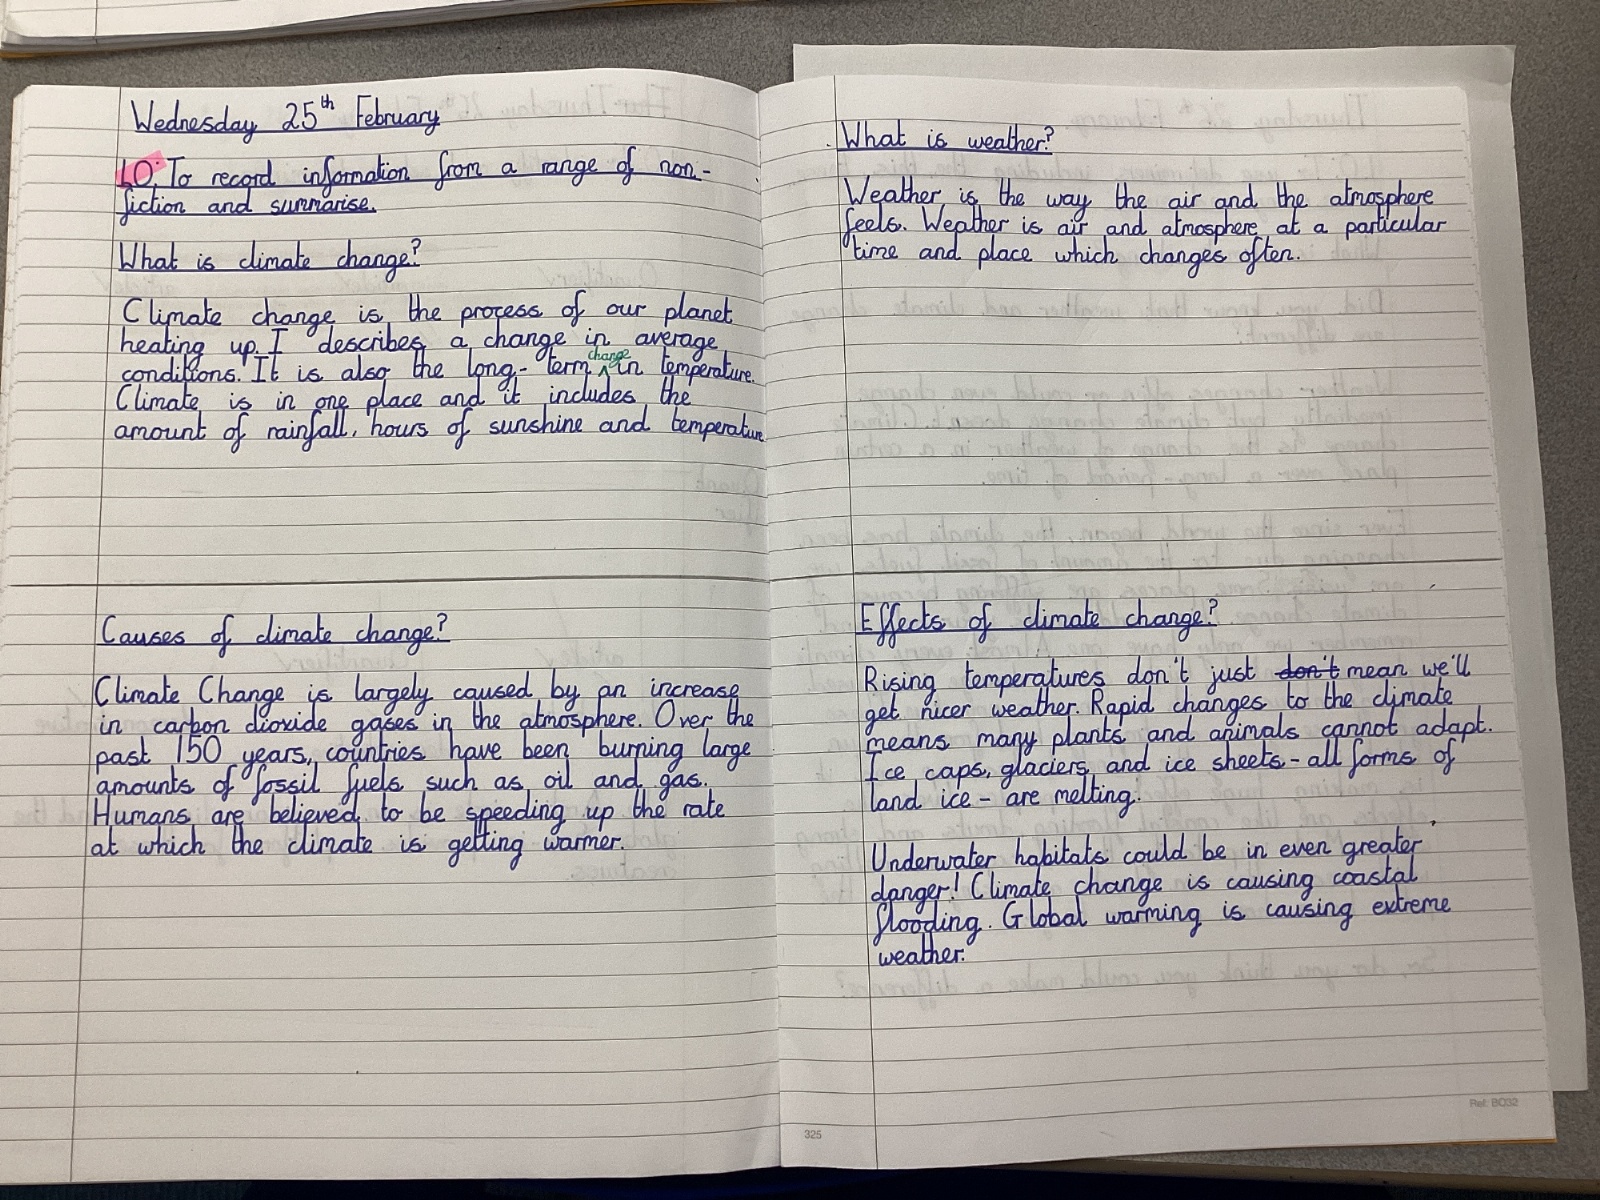 Wednesday 25th February
LO: To record information from a range of non-
fiction and summarise.
What is climate change?
Climate change is the process of our planet
heating up. I describes a change in average
conditions. It is also the long-term change in temperature.
Climate is in one place and it includes the
amount of rainfall, hours of sunshine and temperature
Causes of climate change?
Climate Change is largely caused by an increase
in carbon dioxide gases in the atmosphere. Over the
past 150 years, countries have been burning large
amounts of fossil fuels such as oil and gas.
Humans are believed to be speeding up the rate
at which the climate is getting warmer.
What is weather?
Weather is the way the air and the atmosphere
feels. Weather is air and atmosphere at a particular
time and place which changes often.
Effects of climate change?
Rising temperatures don't just don't mean we'll
get nicer weather. Rapid changes to the climate
means many plants and animals cannot adapt.
Ice caps, glaciers and ice sheets - all forms of
land ice - are melting.
Underwater habitats could be in even greater
danger! Climate change is causing coastal
flooding. Global warming is causing extreme
weather.
325
Ref: BO32